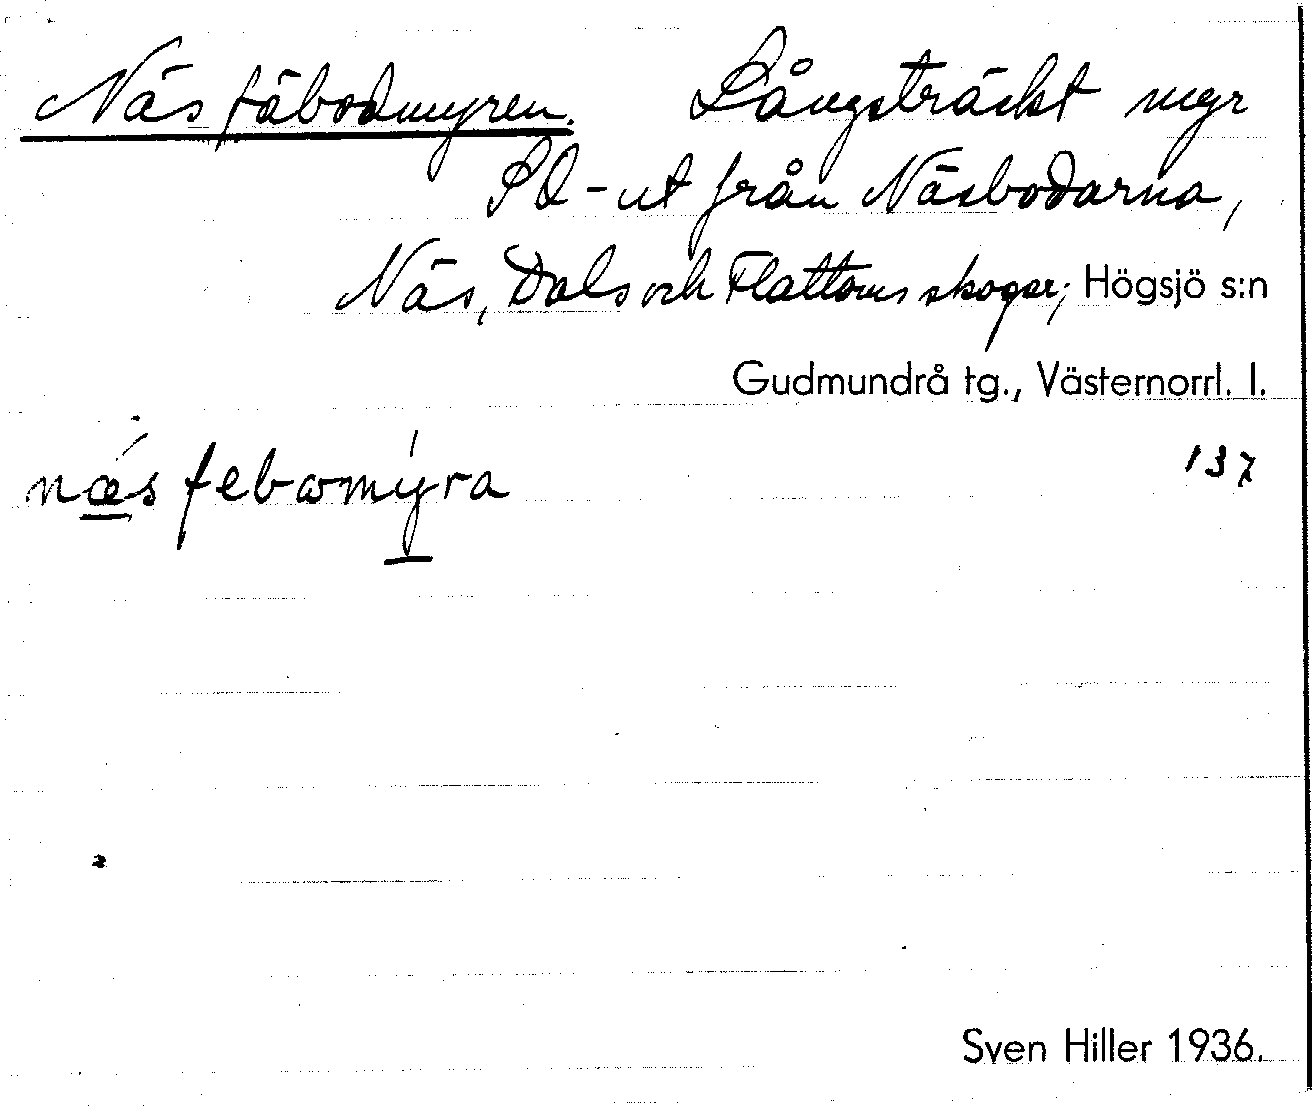 Näs fäbodmyren. Långsträckt myr
SO-ut från Näsbodarna,
Näs, Dals och Flattoms skogar; Högsjö s:n
Gudmundrå tg., Västernorrl. l.
137
næs febωmyra
Sven Hiller 1936.